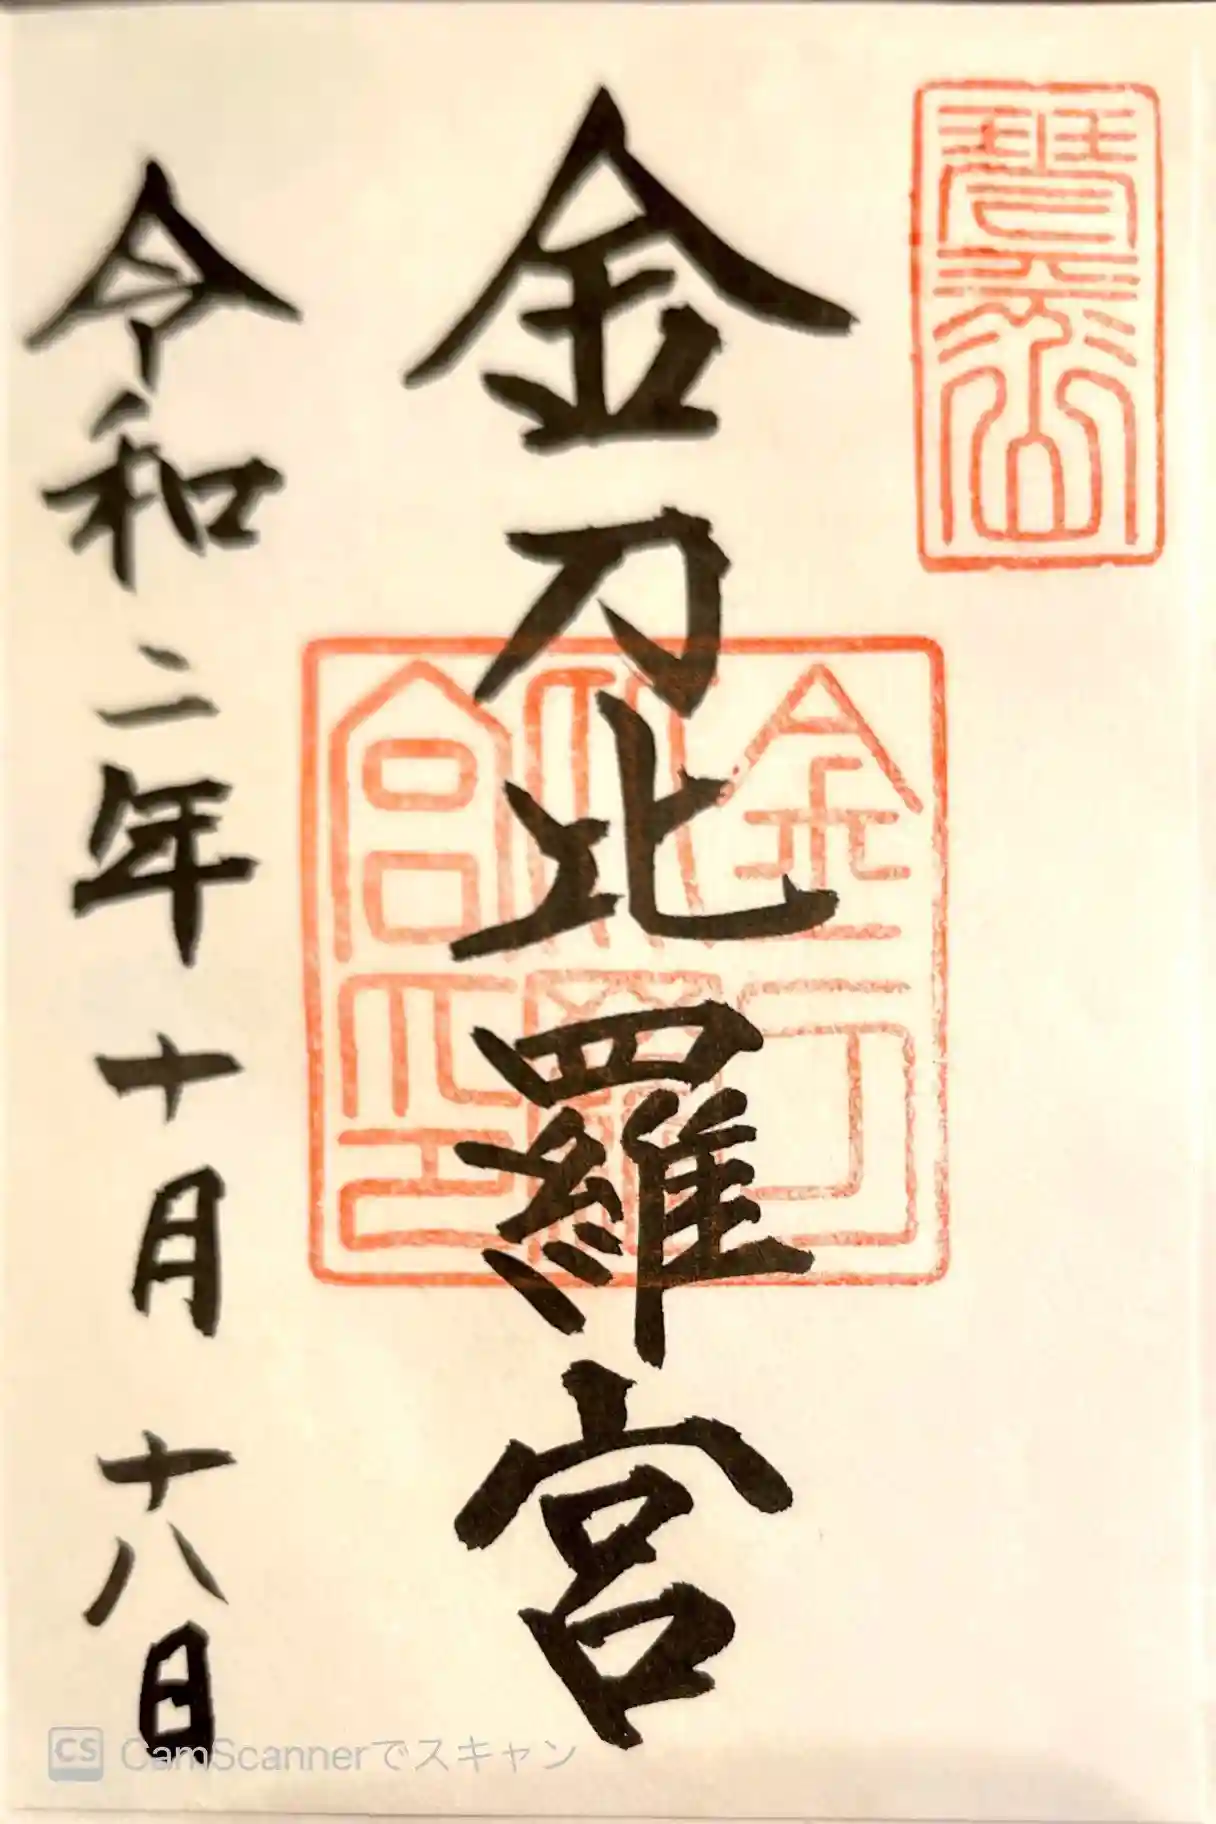 琴平山
金刀比羅宮
金刀比羅宮印
令和二年十月十八日
CS CamScannerでスキャン